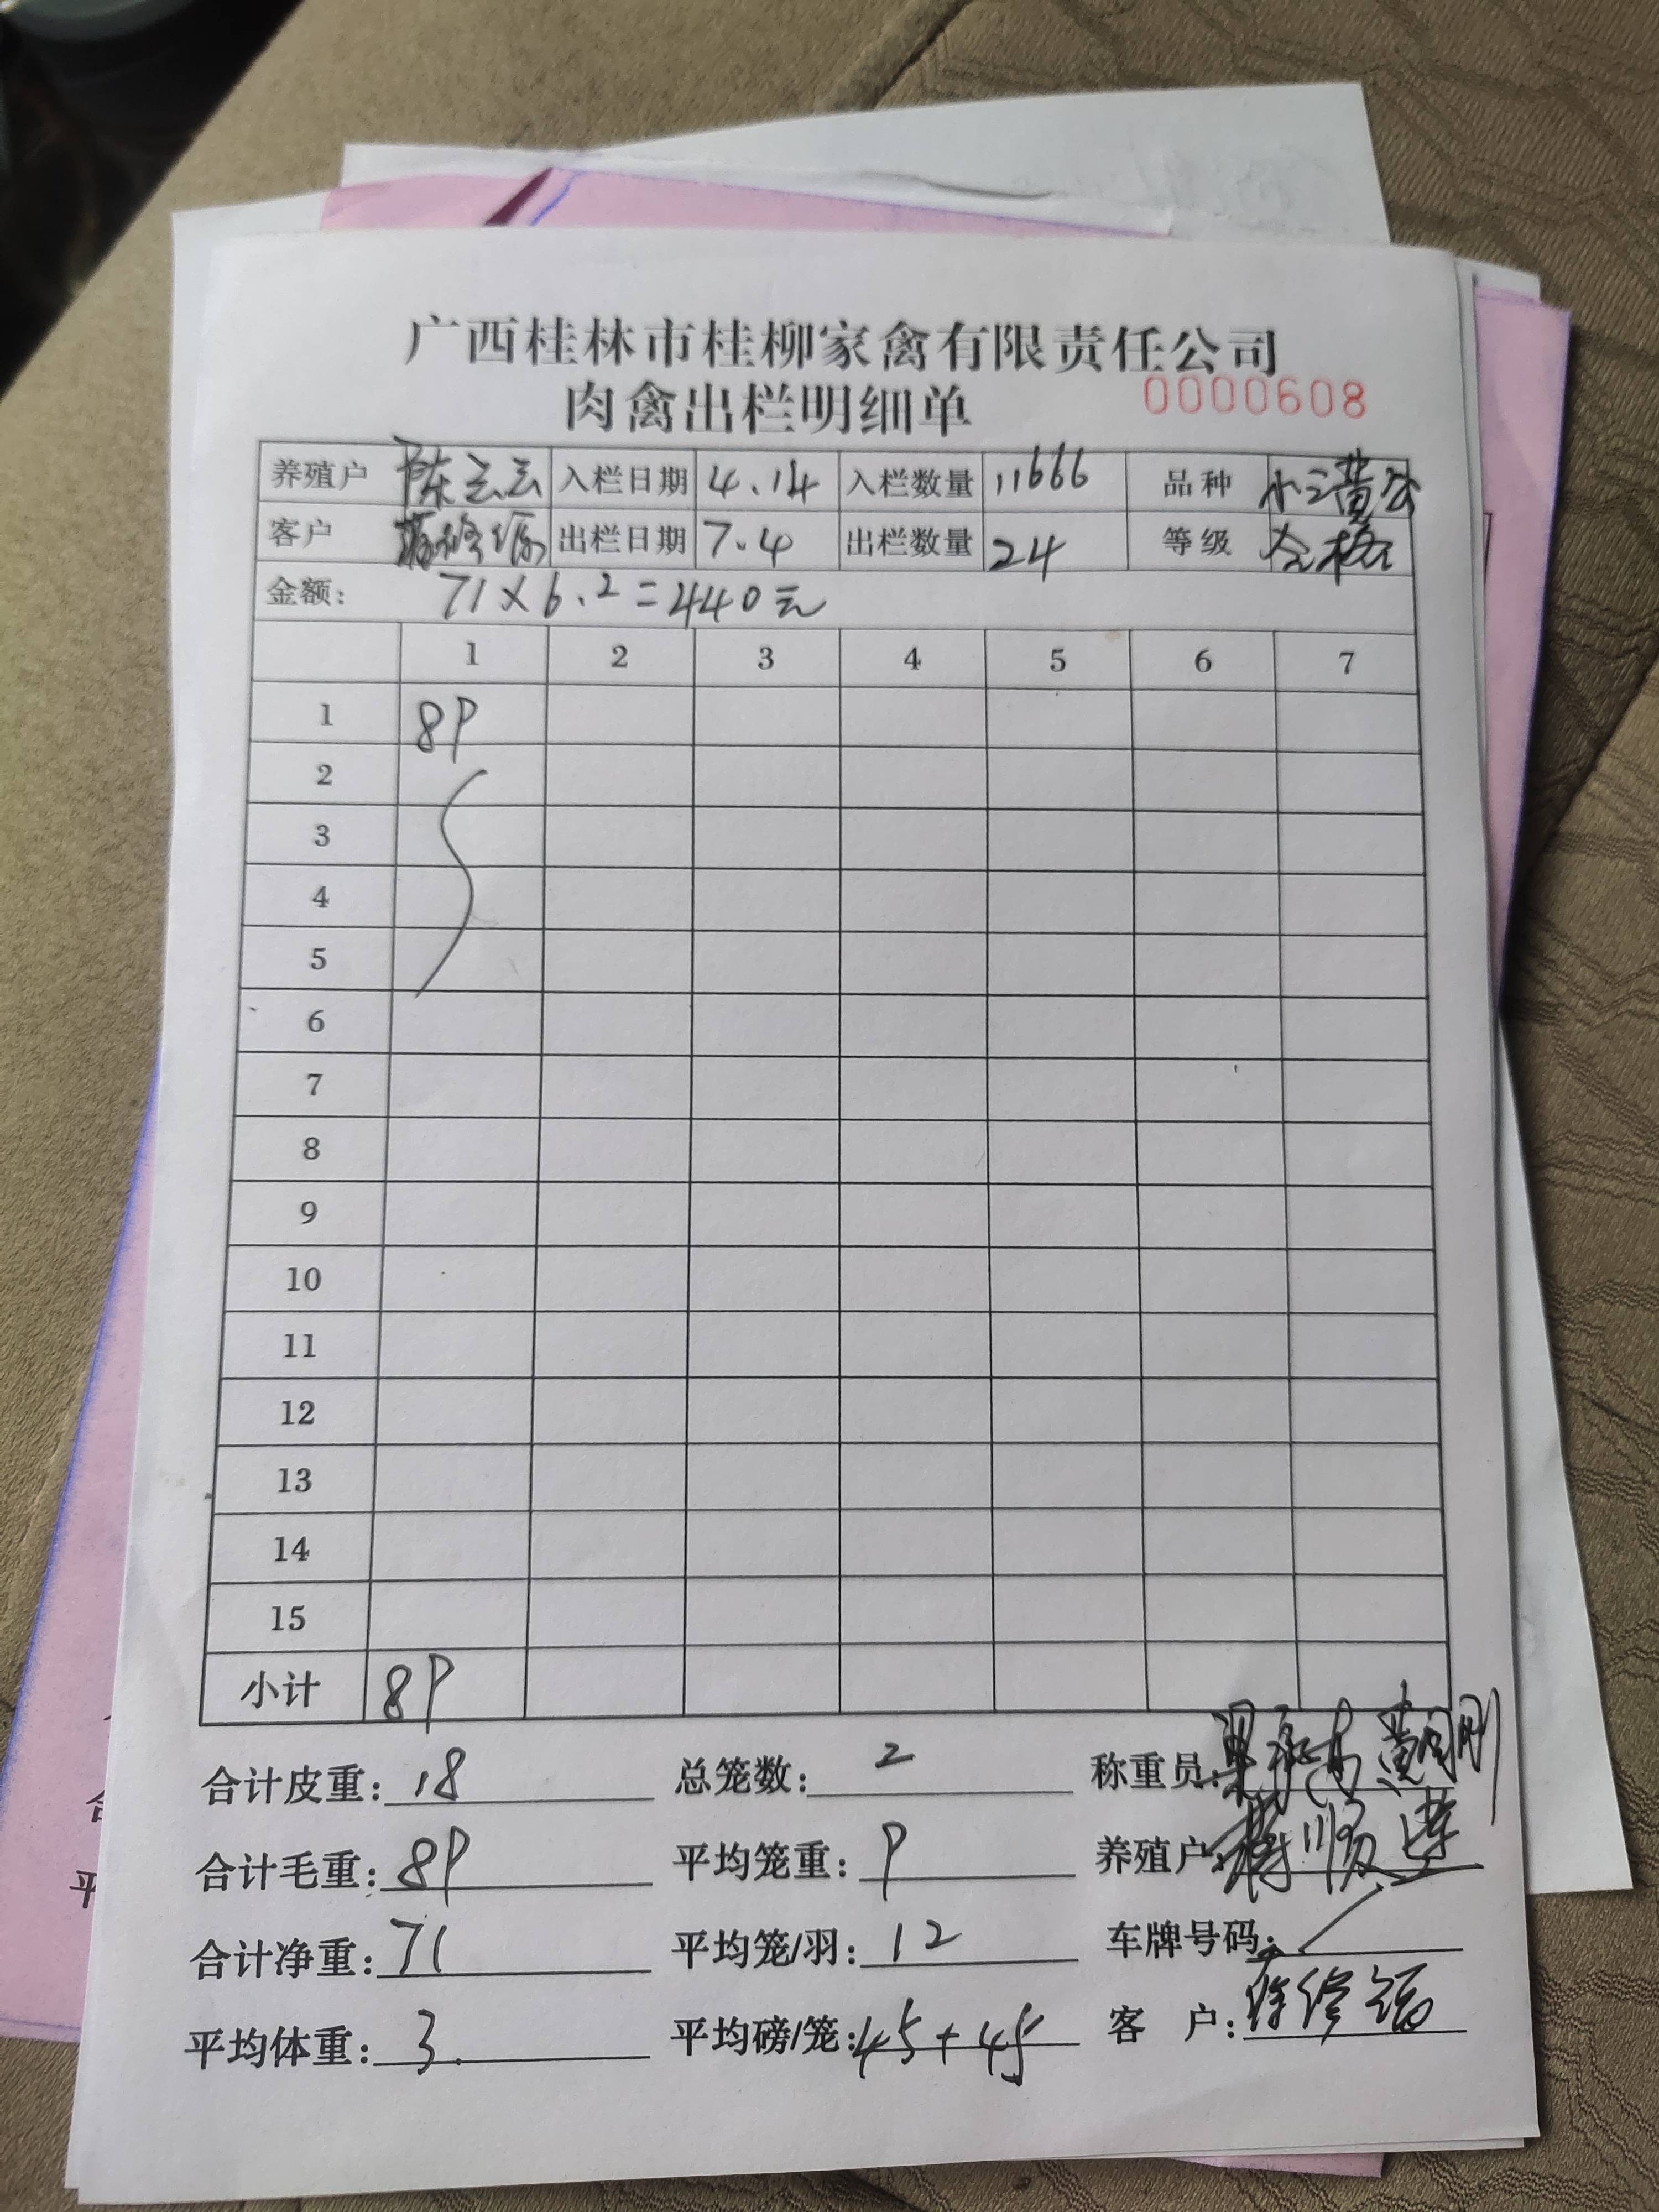 广西桂林市桂柳家禽有限责任公司
肉禽出栏明细单 0000608
养殖户 陈云云 入栏日期 4.14 入栏数量 11666 品种 小三黄公
客户 出栏日期 7.4 出栏数量 24 等级 合格
金额: 71×6.2=440元
1 2 3 4 5 6 7
1 89
2
3
4
5
6
7
8
9
10
11
12
13
14
15
小计 89
合计皮重: 18 总笼数: 2 称重员:
合计毛重: 89 平均笼重: 9 养殖户:
合计净重: 71 平均笼/羽: 12 车牌号码:
平均体重: 3. 平均磅/笼: 45+45 客 户: